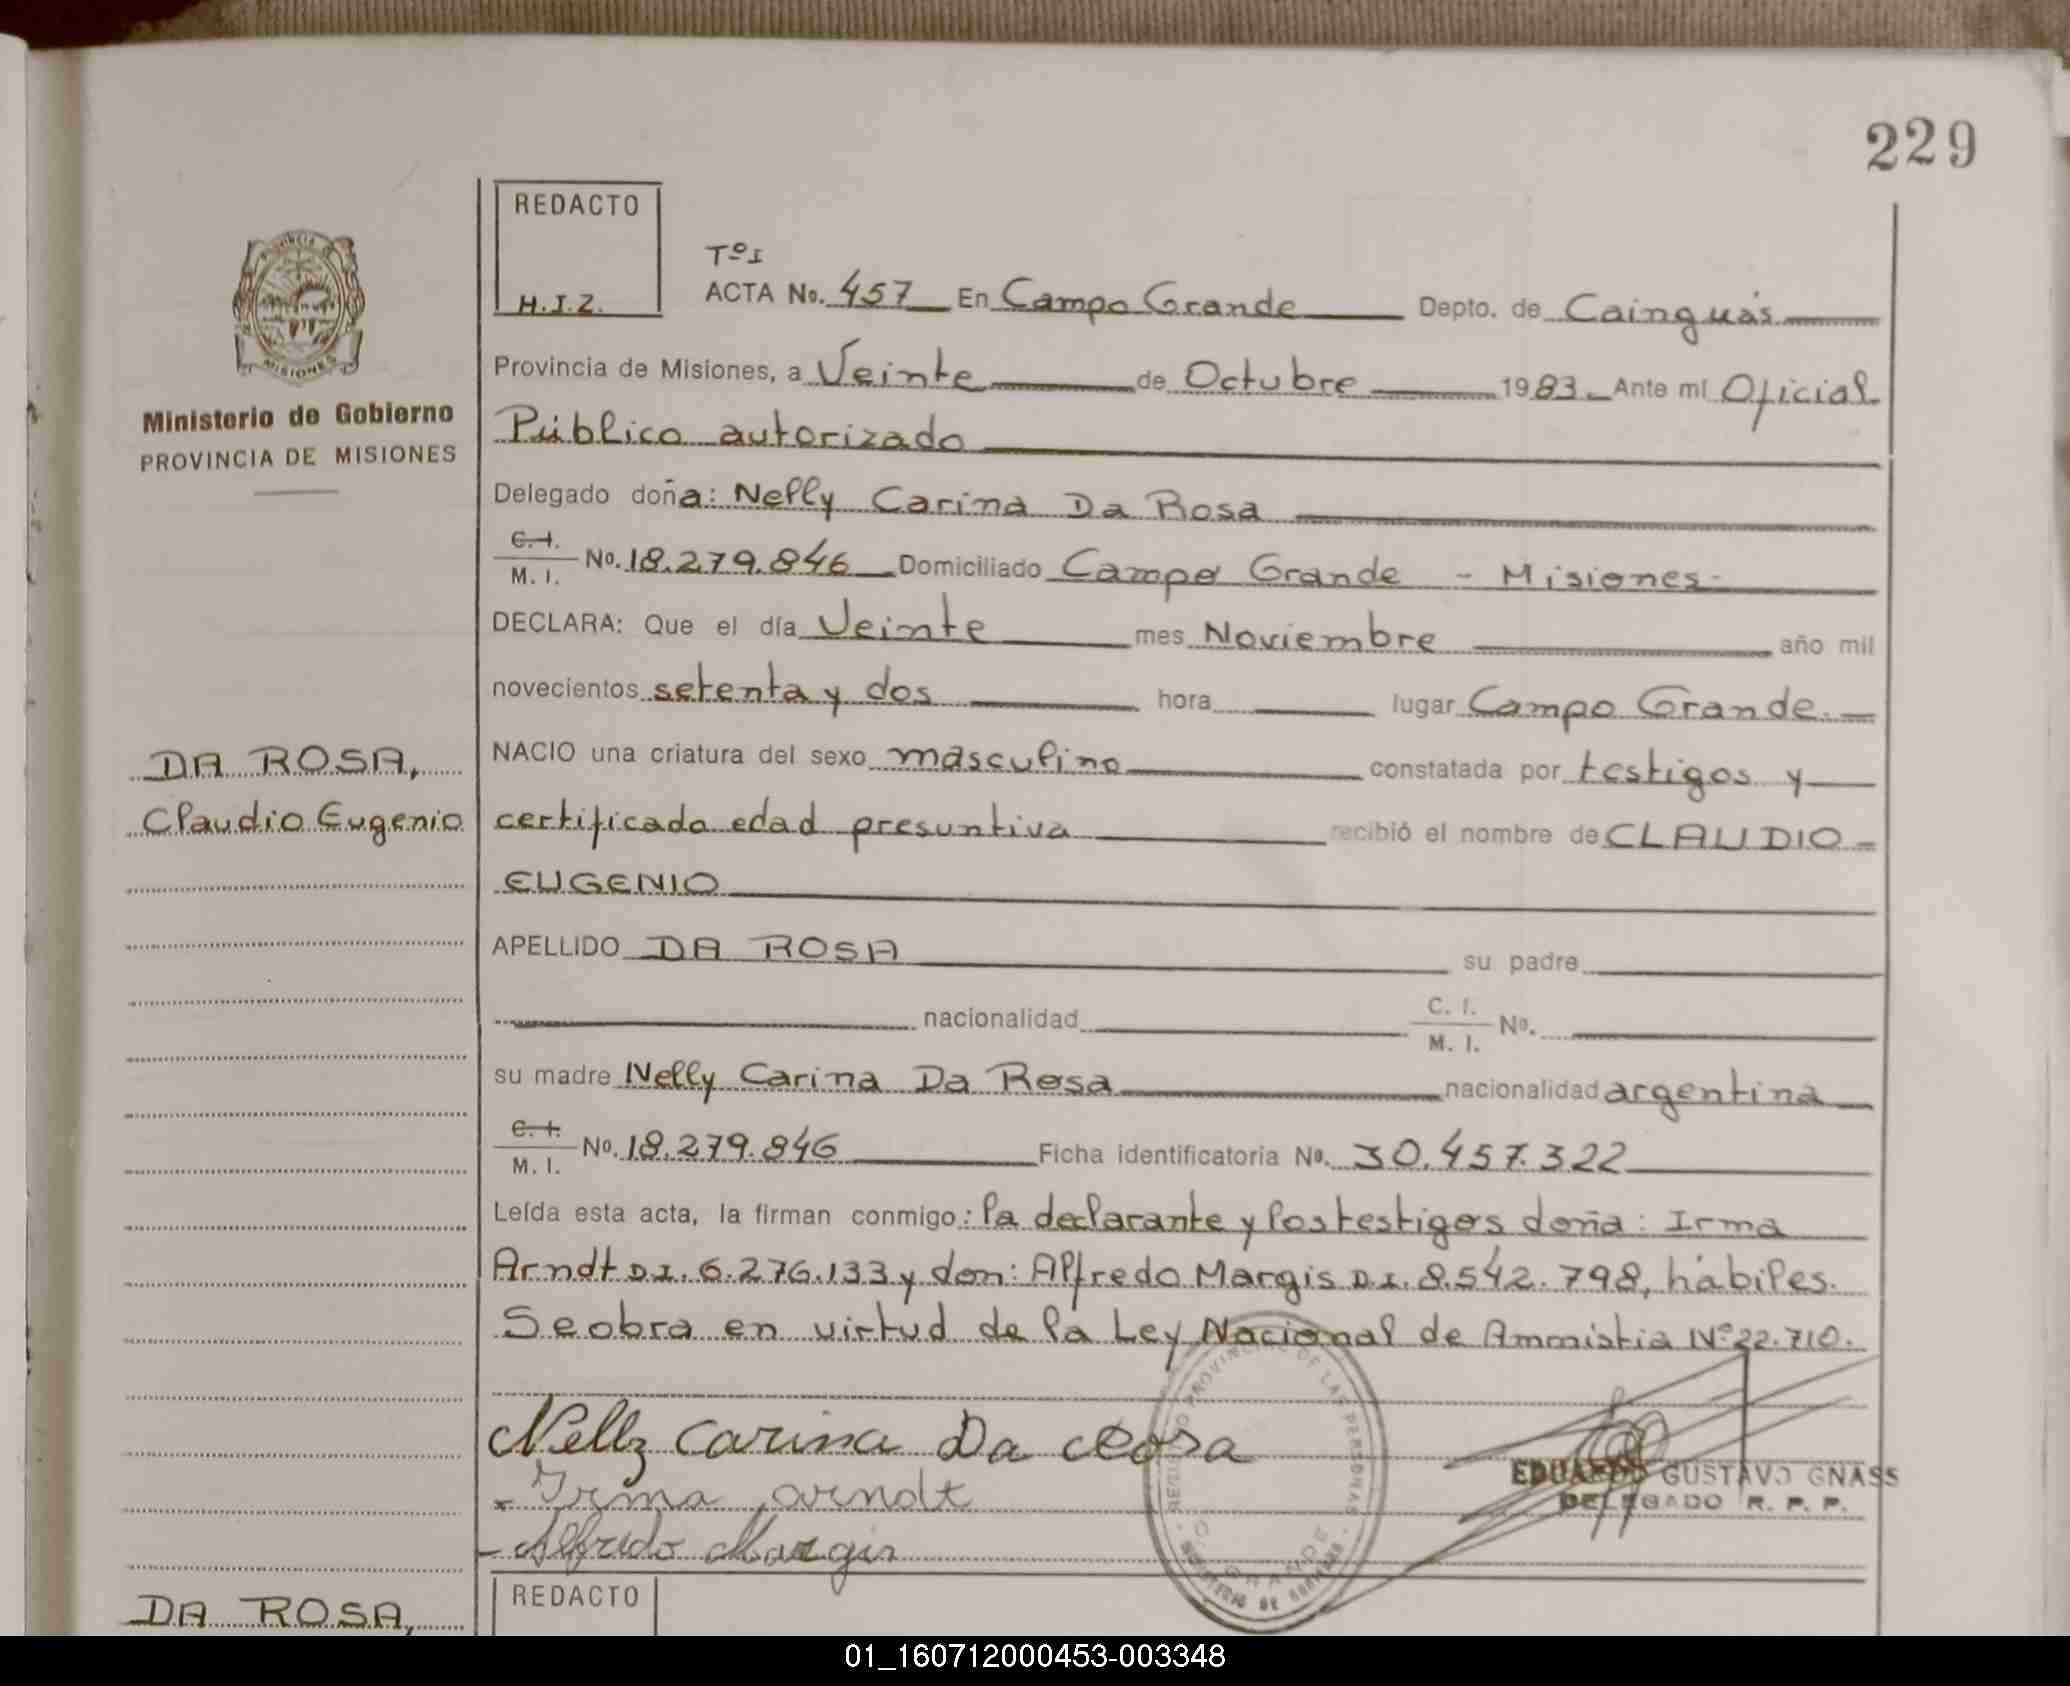 229
REDACTO
H.J.Z.
PROVINCIA
MISIONES
Ministerio de Gobierno
PROVINCIA DE MISIONES
Tº I
ACTA No. 457 En Campo Grande Depto. de Cainguás
Provincia de Misiones, a Veinte de Octubre 1983 Ante mí Oficial
Público autorizado
Delegado doña: Nelly Carina Da Rosa
C. I. M. I. No. 18.279.846 Domiciliado Campo Grande - Misiones-
DECLARA: Que el día Veinte mes Noviembre año mil
novecientos setenta y dos hora lugar Campo Grande.
NACIO una criatura del sexo masculino constatada por testigos y
certificado edad presuntiva recibió el nombre de CLAUDIO
EUGENIO
DA ROSA,
Claudio Eugenio
APELLIDO DA ROSA su padre
nacionalidad C. I. M. I. No.
su madre Nelly Carina Da Rosa nacionalidad argentina
C. I. M. I. No. 18.279.846 Ficha identificatoria No. 30.457.322
Leída esta acta, la firman conmigo: la declarante y los testigos doña: Irma
Arndt D.I. 6.276.133 y don: Alfredo Margis D.I. 8.542.798, hábiles.
Se obra en virtud de la Ley Nacional de Ammistia Nº 22.710.
Nelly Carina Da Rosa
Irma Arndt
Alfredo Margis
REGISTRO PROVINCIAL DE LAS PERSONAS
C. GRANDE
MINISTERIO DE GOBIERNO
EDUARDO GUSTAVO GNASS
DELEGADO R. P. P.
DA ROSA,
REDACTO
01_160712000453-003348